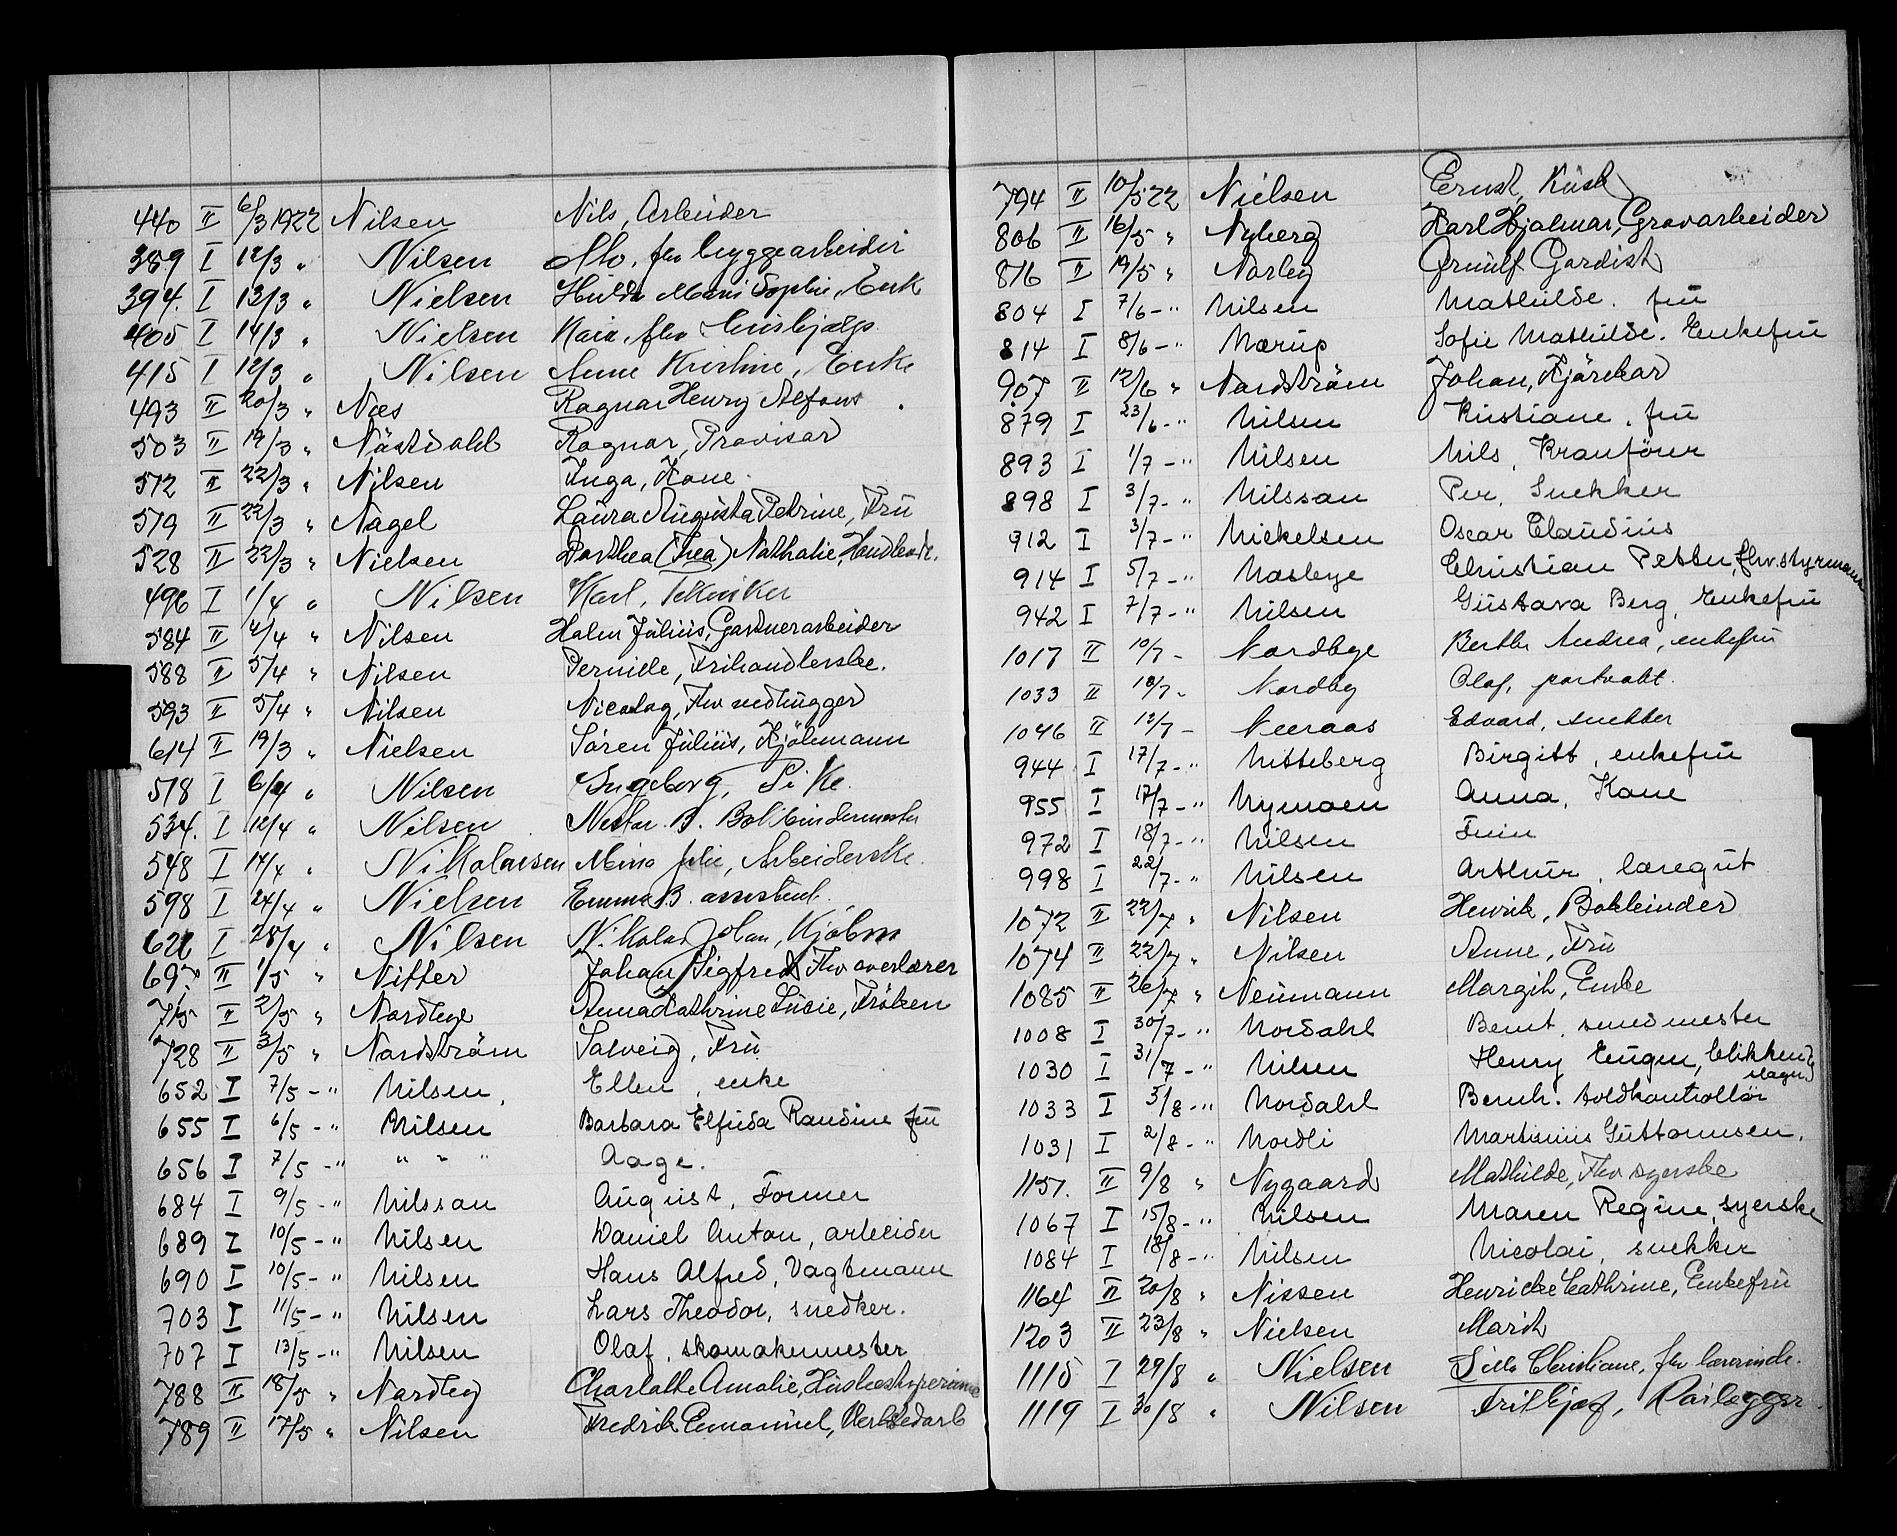 440 II 6/3 1922 Nilsen Nils, Arbeider
389 I 12/3 " Nilsen Alb. fhv bryggearbeider
394. I 13/3 " Nielsen Hulda Marie Sophie, Enk
405 I 14/3 " Nielsen Kaia, fhv
415 I 12/3 " Nilsen Anne Kristine, Enke
493 II 20/3 " Næs Ragnar Henry Alfons
503 II 19/3 " Nästdahl Ragnar, Provisor
512 II 22/3 " Nilsen Inga, Kone.
519 II 22/3 " Nagel Laura Augusta Petrine, Fru
528 II 22/3 " Nielsen Dorthea (Thea) Nathalie, Handlende.
496 I 1/4 " Nilsen Karl, Tekniker
584 II 4/4 " Nilsen Halm Julius, Gartnerarbeider
588 II 5/4 " Nilsen Pernille, Frihandlerske.
593 II 5/4 " Nilsen Nicolay, Fhv vedhugger
614 II 19/3 " Nielsen Sören Julius, Kjölmann
518 I 6/4 " Nilsen Ingeborg, Pike.
534. I 12/4 " Nilsen Nestor. B. Bokbindermester
548 I 14/4 " Nikolaisen Mina Julie, Arbeiderske.
598 I 24/4 " Nielsen Emma B. assistent.
622 I 28/4 " Nilsen Nikolai Johan, Kjøbm
697 II 1/5 " Nitter Johan Sigfred Fhv overlærer
715 II 2/5 " Nordbye Anna Cathrine Lucie, Fröken
728 II 3/5 " Nordström Solveig, Fru
652 I 7/5 - " Nilsen, Ellen, enke
655 I 6/5 - " Nilsen Barbara Elfrida Randine fru
656 I 7/5 - " " " " Aage.
684 I 9/5 - " Nilsson August, Former
689 I 10/5 - " Nilsen Daniel Anton, arbeider
690 I 10/5 - " Nilsen Hans Alfred, Vagtmann
703 I 11/5 - " Nilsen Lars Theodor, snedker.
707 I 13/5 - " Nilsen Olaf, skomakermester
788 II 18/5 " Nordby Charlotte Amalie, Husbestyrerinne
789 II 17/5 " Nilsen Fredrik Emanuel, Verkstedarb
794 II 10/5 22 Nielsen Ernst, Kusk
806 II 16/5 " Nyberg Karl Hjalmar, Gravarbeider
816 II 19/5 " Norley Ørnulf Gardist
804 I 7/6 - " Nilsen Mathilde. fru
814 I 8/6 - " Nærup Sofie Mathilde. Enkefru
907 II 12/6 " Nordström Johan, Kjörekar
879 I 23/6 - " Nilsen Kristiane, fru
893 I 1/7 - " Nilsen Nils, Kranfører
898 I 3/7 - " Nilsson Per, Snekker
912 I 3/7 - " Nickelsen Oscar Claudius
914 I 5/7 - " Næsbye Christian Petter, fhv. styrmann
942 I 7/7 - " Nilsen Gustava Berg, Enkefru
1017 II 10/7 - Nordbye Berthe Andrea, enkefru
1033 II 18/7 " Nordby Olaf, portvakt.
1046 II 12/7 - Neeraas Edvard, snekker
944 I 17/7 - " Nitteberg Birgitt, enkefru
955 I 17/7 - " Nymoen Anna, Kone
972 I 18/7 - " Nilsen Finn
998 I 22/7 - " Nilsen Arthur, læregut
1072 II 22/7 " Nilsen Henrik, Bokbinder
1074 II 22/7 " Nilsen Anne, Fru
1085 II 26/7 " Neumann Margit, Enke
1008 I 30/7 - " Nordahl Bernt, smedmester
1030 I 31/7 - " Nilsen Henry Eugen, blikkenslager
1033 I 3/8 - " Nordahl Bernh. toldkontrollør
1031 I 2/8 - " Nordli Martinius Guttormsen.
1151. II 9/8 " Nygaard Mathilde, Fhv syerske
1067 I 15/8 - " Nilsen Maren Regine, syerske
1084 I 18/8 - " Nilsen Nicolai, snekker
1164 II 20/8 " Nissen Henricke Cathrine, Enkefru
1203 II 23/8 " Nielsen Marit
1115 I 29/8 " Nielsen Christiane, fhv lærerinde.
1119 I 30/8 " Nilsen Fritbjof, Rørlegger.